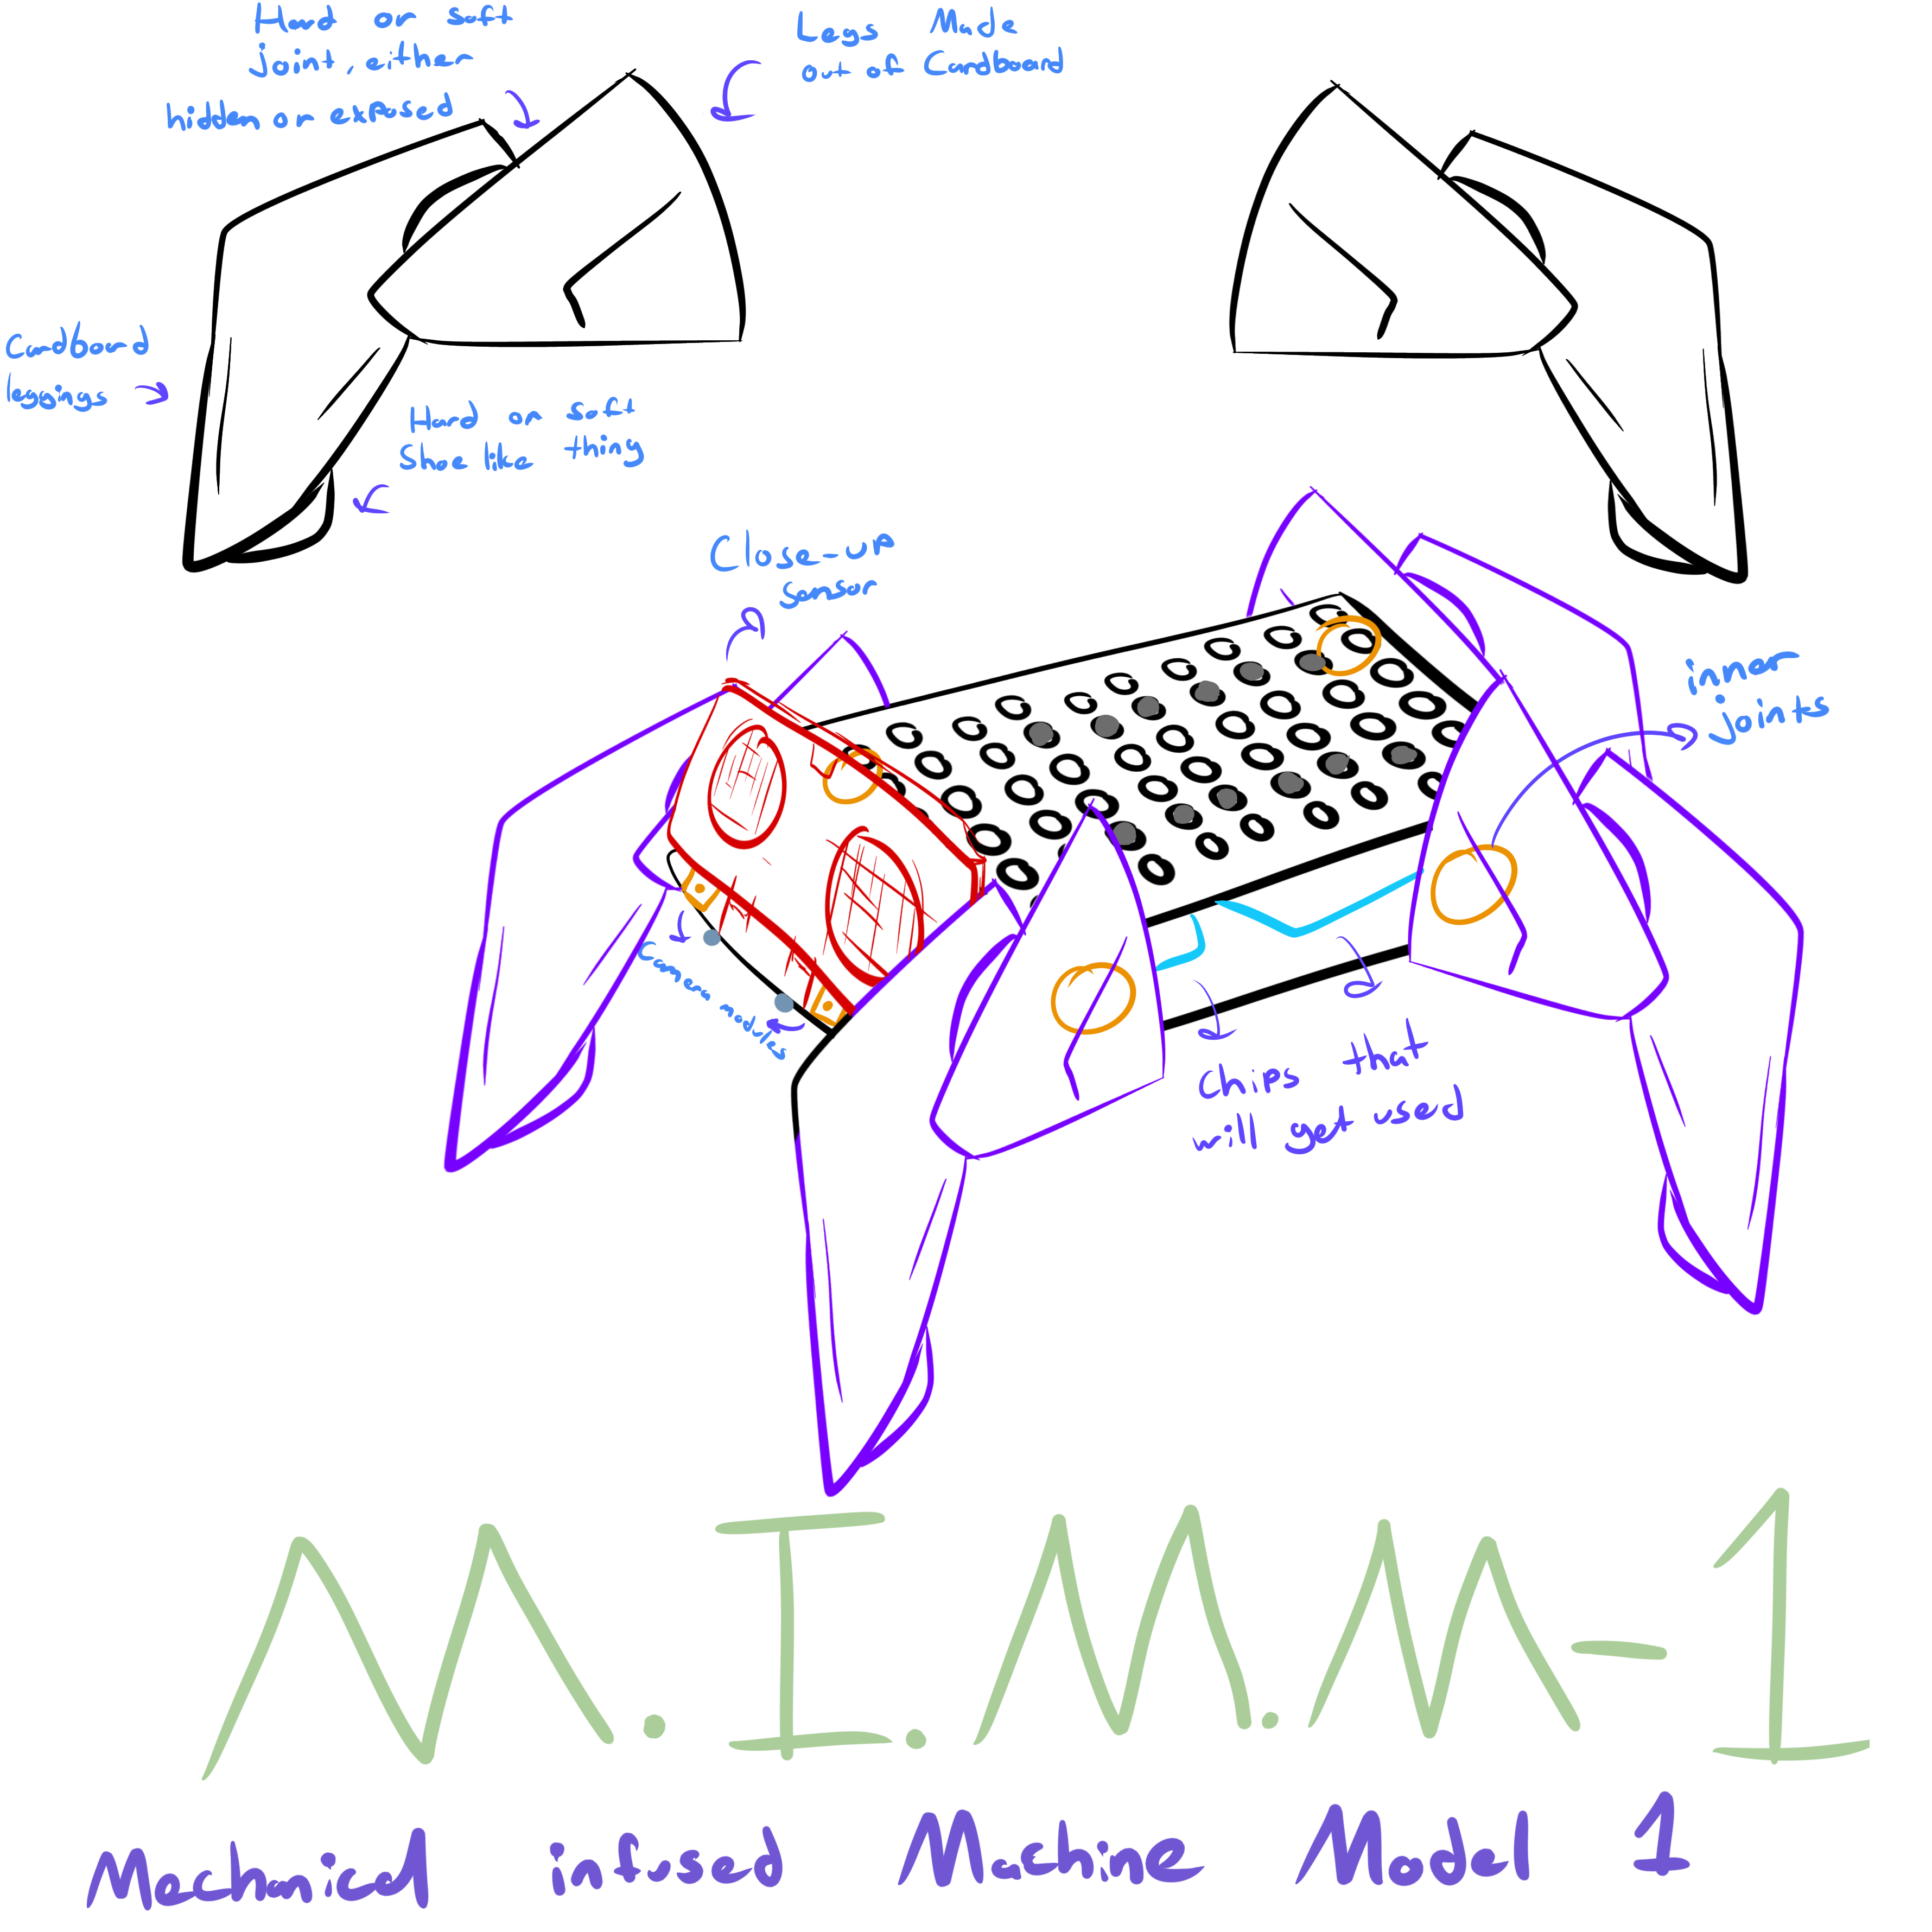 Hard or soft
joint, either
hidden or exposed
Legs Made
out of Cardboard
Cardboard
leggings
Hard or soft
Shoe like thing
Close-up
sensor
inner
joints
Camera modules
Chips that
will get used
M.I.M.M-1
Mechanical infused Machine Model 1